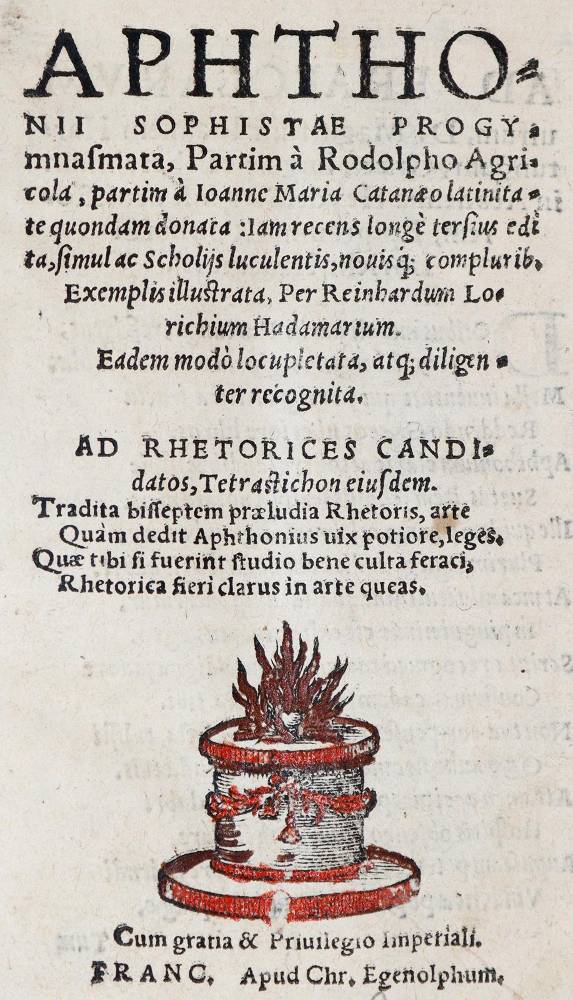 APHTHO⸗
NII SOPHISTAE PROGY⸗
mnaſmata, Partim à Rodolpho Agri⸗
cola, partim à Ioanne Maria Catanæo latinita⸗
te quondam donata: Iam recens longè terſius edi
ta, ſimul ac Scholijs luculentis, nouisq́; complurib.
Exemplis illuſtrata, Per Reinhardum Lo⸗
richium Hadamarium.
Eadem modò locupletata, atq; diligen⸗
ter recognita.
AD RHETORICES CANDI⸗
datos, Tetraſtichon eiuſdem.
Tradita biſſeptem præludia Rhetoris, arte
Quàm dedit Aphthonius uix potiore, leges.
Quæ tibi ſi fuerint ſtudio bene culta feraci,
Rhetorica fieri clarus in arte queas.
Cum gratia & Priuilegio Imperiali.
FRANC. Apud Chr. Egenolphum.